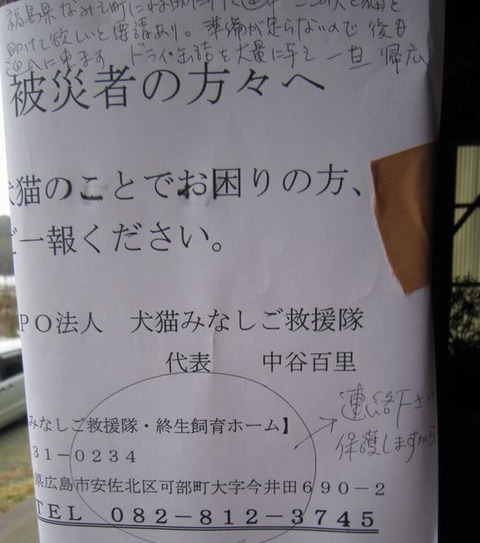 福島県なみえ町に
助けて欲しいと要請あり。準備が足らないので後日
迎えに来ます ドライ缶詰を大量に与え一旦帰広
被災者の方々へ
犬猫のことでお困りの方、
ご一報ください。
PO法人 犬猫みなしご救援隊
代表 中谷百里
みなしご救援隊・終生飼育ホーム】
31-0234
県広島市安佐北区可部町大字今井田690-2
TEL 082-812-3745
連絡下さい
保護しますから